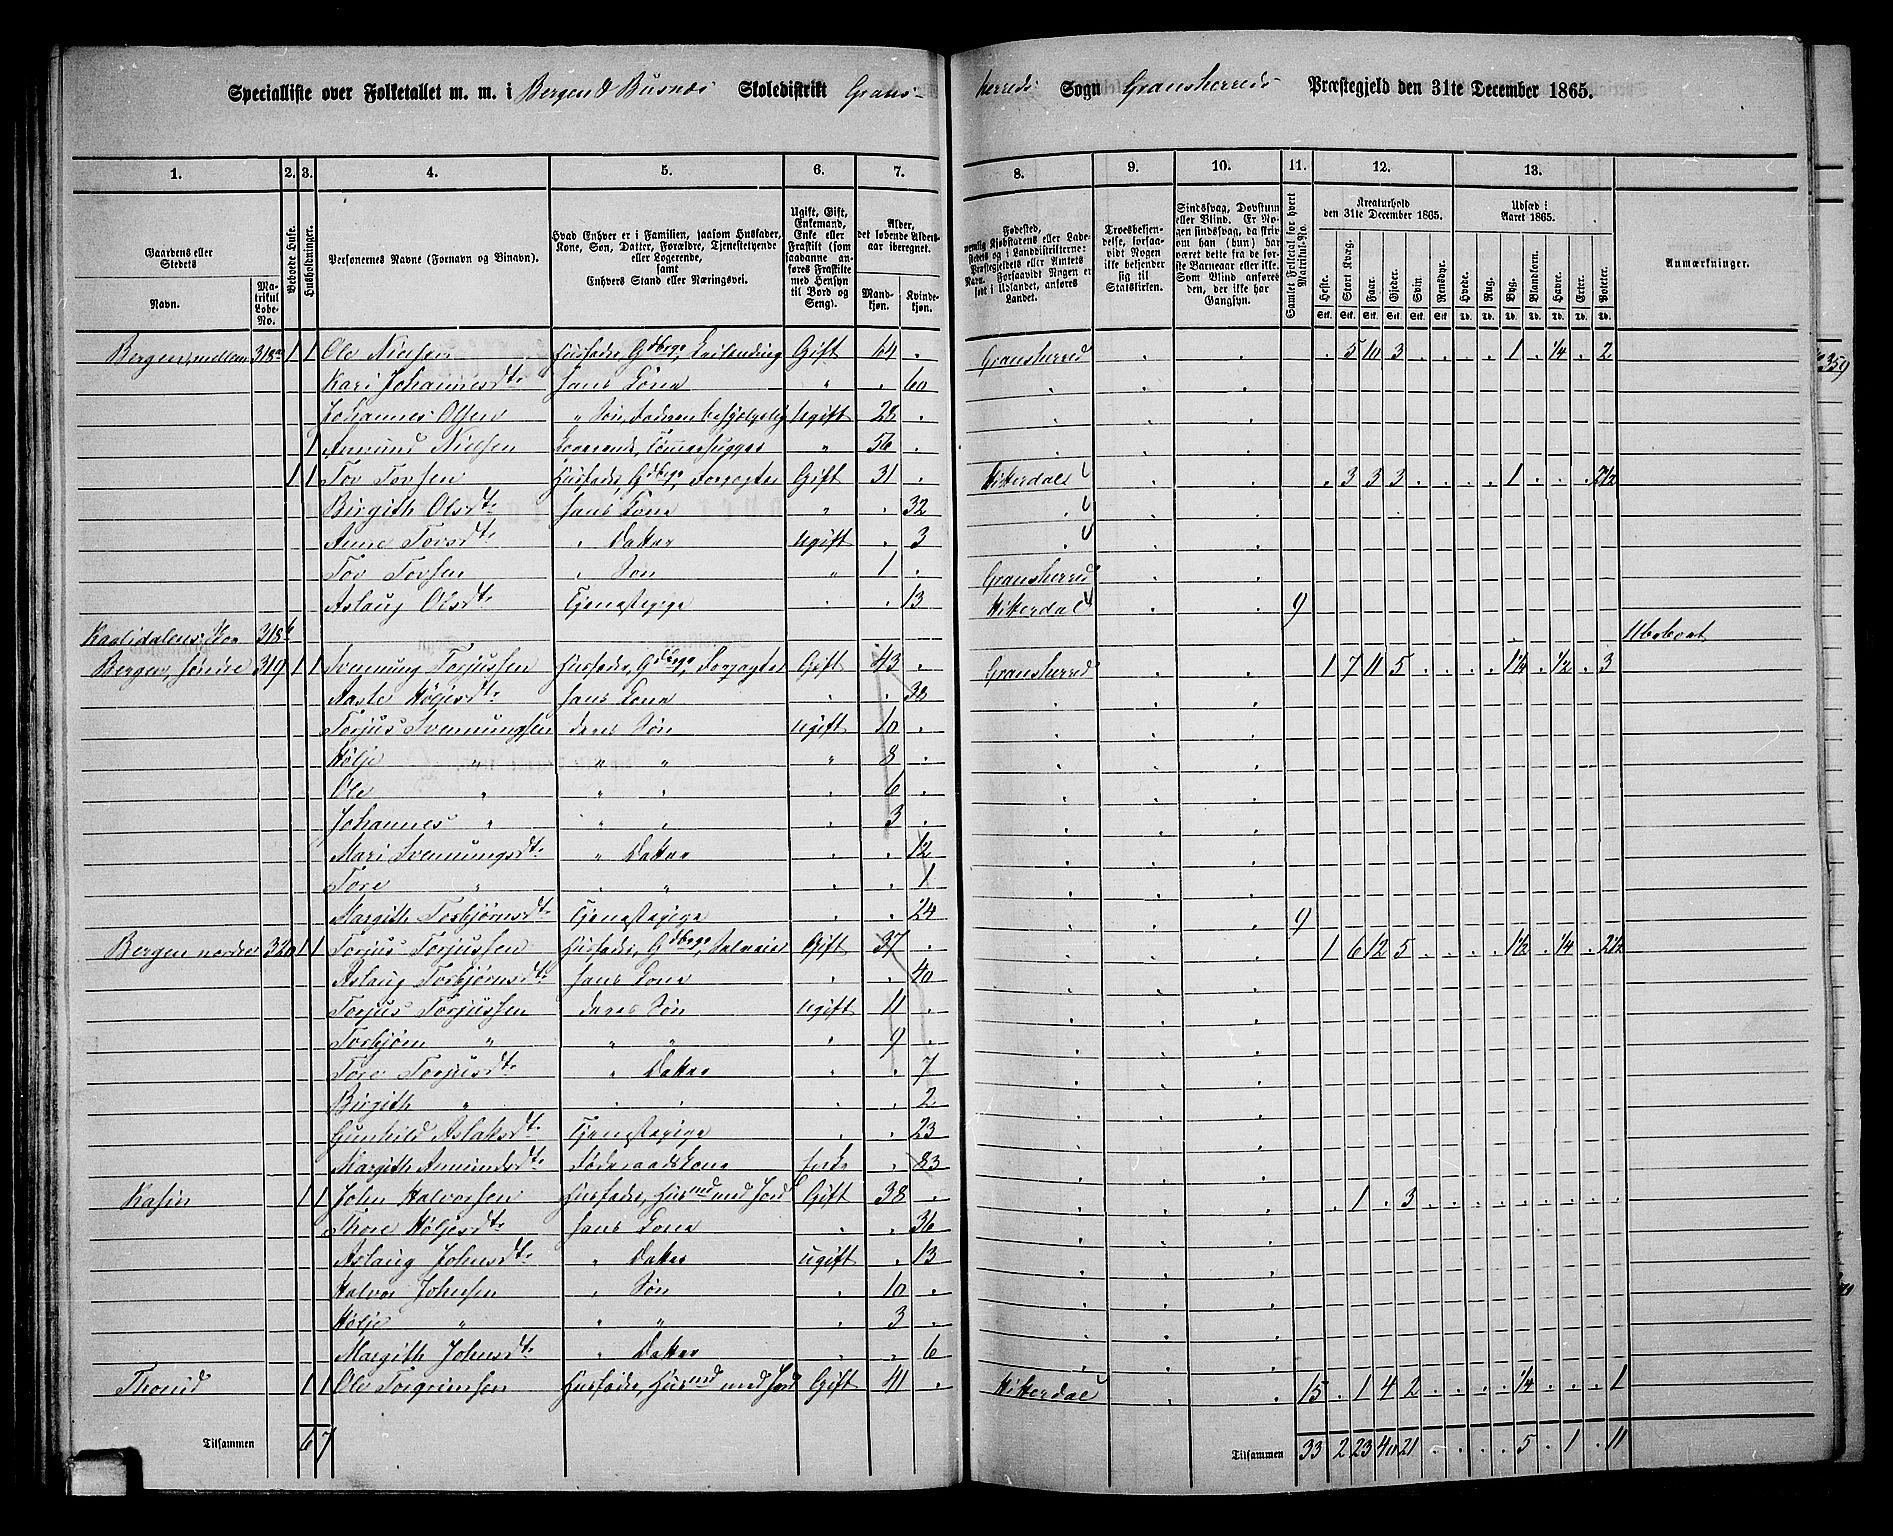 Specialliste over Folketallet m. m. i Bergen & Busnes Skoledistrikt Grans-herreds Sogn Gransherreds Præstegjeld den 31te December 1865.
1. 2. 3. 4. 5. 6. 7. 8. 9. 10. 11. 12. 13.
Gaardens eller Stedets Navn. Matrikul Løbe-No. Beboede Huse. Husholdninger. Personernes Navne (Fornavn og Binavn).
Hvad Enhver er i Familien, saasom Husfader, Kone, Søn, Datter, Forældre, Tjenestetyende eller Logerende, samt Enhvers Stand eller Næringsvei.
Ugift, Gift, Enkemand, Enke eller Fraskilt (saadanne anføres Fraskilte med Hensyn til Bord og Seng).
Alder, det løbende Alders-aar iberegnet. Mandkjøn. Kvindekjøn.
Fødested,
Troesbekjendelse, forsaavidt Nogen ikke bekjender sig til Statskirken.
Sindssvag, Døvstum eller Blind.
Samlet Folketal for hvert Matrikul-No.
Kreaturhold den 31te December 1865. Heste. Stort Kvæg. Faar. Gjeder. Svin. Rensdyr.
Udsæd i Aaret 1865. Hvede. Rug. Byg. Blandkorn. Havre. Erter. Poteter.
Anmærkninger.
Bergen, mellem 318a 1 1 Ole Nielsen Husfader, Gdbrgr, Leilending Gift 64 Gransherred 5 10 3 1 1/4 2
Kari Johannesdtr hans Kone " 60
Johannes Olsen " Søn, Faderen behjelpelig Ugift 28
1 Amund Nielsen Logerende, Tømmerhugger " 56
1 1 Tov Tovsen Husfader, Gdbrgr, Forpagter Gift 31 Hitterdal 3 3 3 1 2 1/2
Birgith Olsdtr hans Kone " 32
Anne Tovsdtr " Datter Ugift 3
Tov Tovsen " Søn " 1 Gransherred
Aslaug Olsdtr Tjenestepige 13 Hitterdal 9
318b Ubeboet
Bergen, søndre 319 1 1 Svennung Torjussen Husfader, Gdbrgr, Forpagter Gift 43 Gransherred 1 7 11 5 1 1/4 1/2 3
Aaste Høljesdtr hans Kone 38
Torjus Svennungsen deres Søn Ugift 10
Hølje " " " " 8
Ole " " " 6
Johannes " " " 3
Mari Svennungsdtr " Datter 12
Tore " " " 1
Margith Torbjørnsdtr Tjenestepige 24 9
Bergen nordre 320 1 1 Torjus Torjussen Husfader, Gdbrgr, Selveier Gift 37 1 6 12 5 1 1/2 1/4 2 1/2
Aslaug Torbjørnsdtr hans Kone 40
Torjus Torjussen deres Søn Ugift 11
Torbjørn " " " 9
Tore Torjusdtr " Datter 7
Birgith " 2
Gunhild Aslaksdtr Tjenestepige 23
Margith Amundsdtr Føderaadskone Enke 83
Kasin 1 1 John Halvorsen Husfader, Husmd med Jord Gift 38 1 3
Thore Høljesdtr hans Kone 36
Aslaug Johnsdtr " Datter Ugift 13
Halvor Johnsen " Søn 10
Hølje " " " 3
Margith Johnsdtr " Datter 6
1 1 Ole Torgrimsen Husfader, Husmd med Jord Gift 41 Hitterdal 15 1 4 2 1/4 1
Tilsammen 6 7 Tilsammen 33 2 23 40 21 5 1 11
359